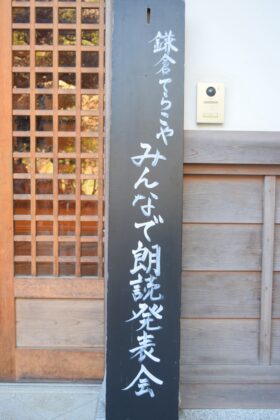 鎌倉てらこや
みんなで朗読発表会